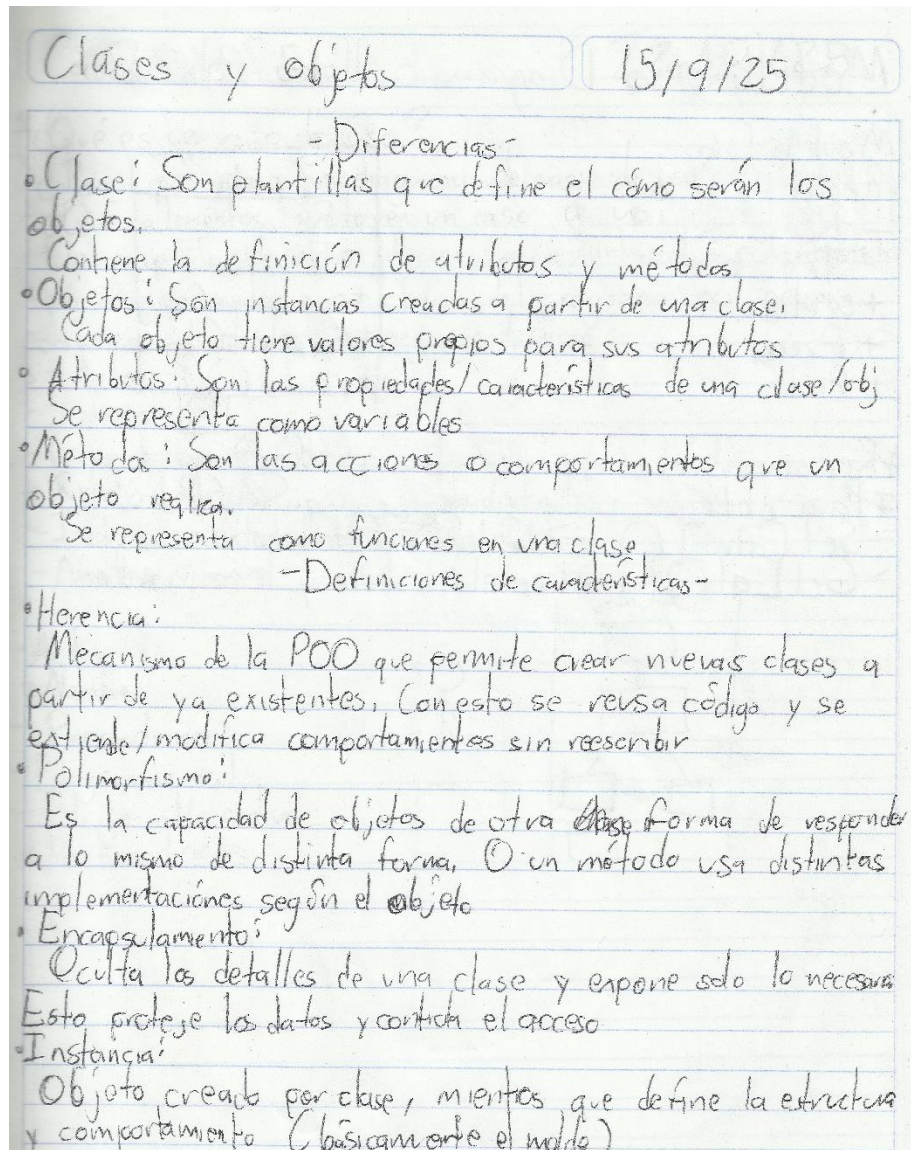 Clases y objetos 15/9/25
-Diferencias-
• Clase: Son plantillas que define el cómo serán los
objetos.
Contiene la definición de atributos y métodos
• Objetos: Son instancias creadas a partir de una clase.
Cada objeto tiene valores propios para sus atributos
• Atributos: Son las propiedades/características de una clase/obj
Se representa como variables
• Métodos: Son las acciones o comportamientos que un
objeto realiza.
Se representa como funciones en una clase
-Definiciones de características-
• Herencia:
Mecanismo de la POO que permite crear nuevas clases a
partir de ya existentes, Con esto se reusa código y se
extiende/modifica comportamientos sin reescribir
• Polimorfismo:
Es la capacidad de objetos de otra forma de responder
a lo mismo de distinta forma. O un método usa distintas
implementaciónes según el objeto
• Encapsulamento:
Oculta los detalles de una clase y expone solo lo necesario
Esto proteje los datos y controla el acceso
• Instancia:
Objeto creado por clase, mientras que define la estructura
y comportamiento (básicamente el molde)